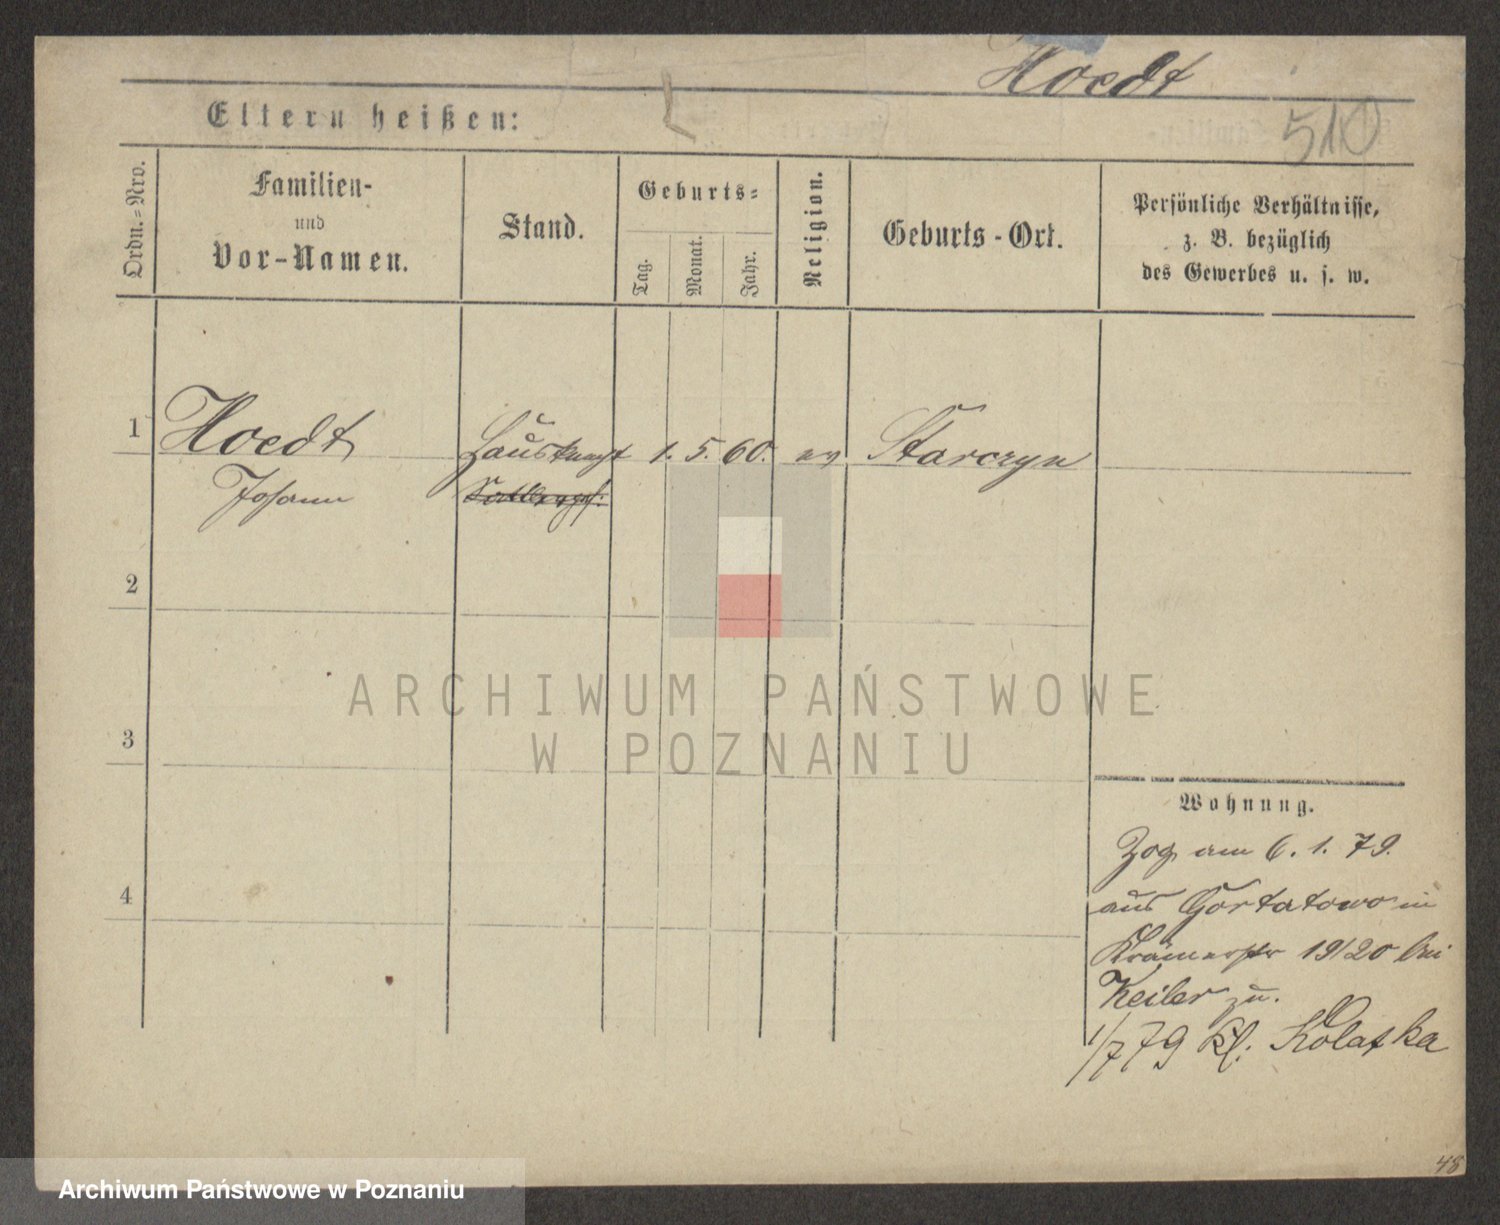 Hoedt
510
Eltern heißen:
Ordn.=Nro.
Familien-
und
Vor-Namen.
Stand.
Geburts=
Tag.
Monat.
Jahr.
Religion.
Geburts-Ort.
Persönliche Verhältnisse,
z. B. bezüglich
des Gewerbes u. s. w.
1 Hoedt Hausknecht 1. 5. 60. ev Starczyn
Johann
2
3
4
ARCHIWUM PAŃSTWOWE
W POZNANIU
Wohnung.
Zog am 6. 1. 79.
aus Gortatowo in
Krämerstr 19/20 bei
Keiler zu.
1/7 79 Kl.
48
Archiwum Państwowe w Poznaniu